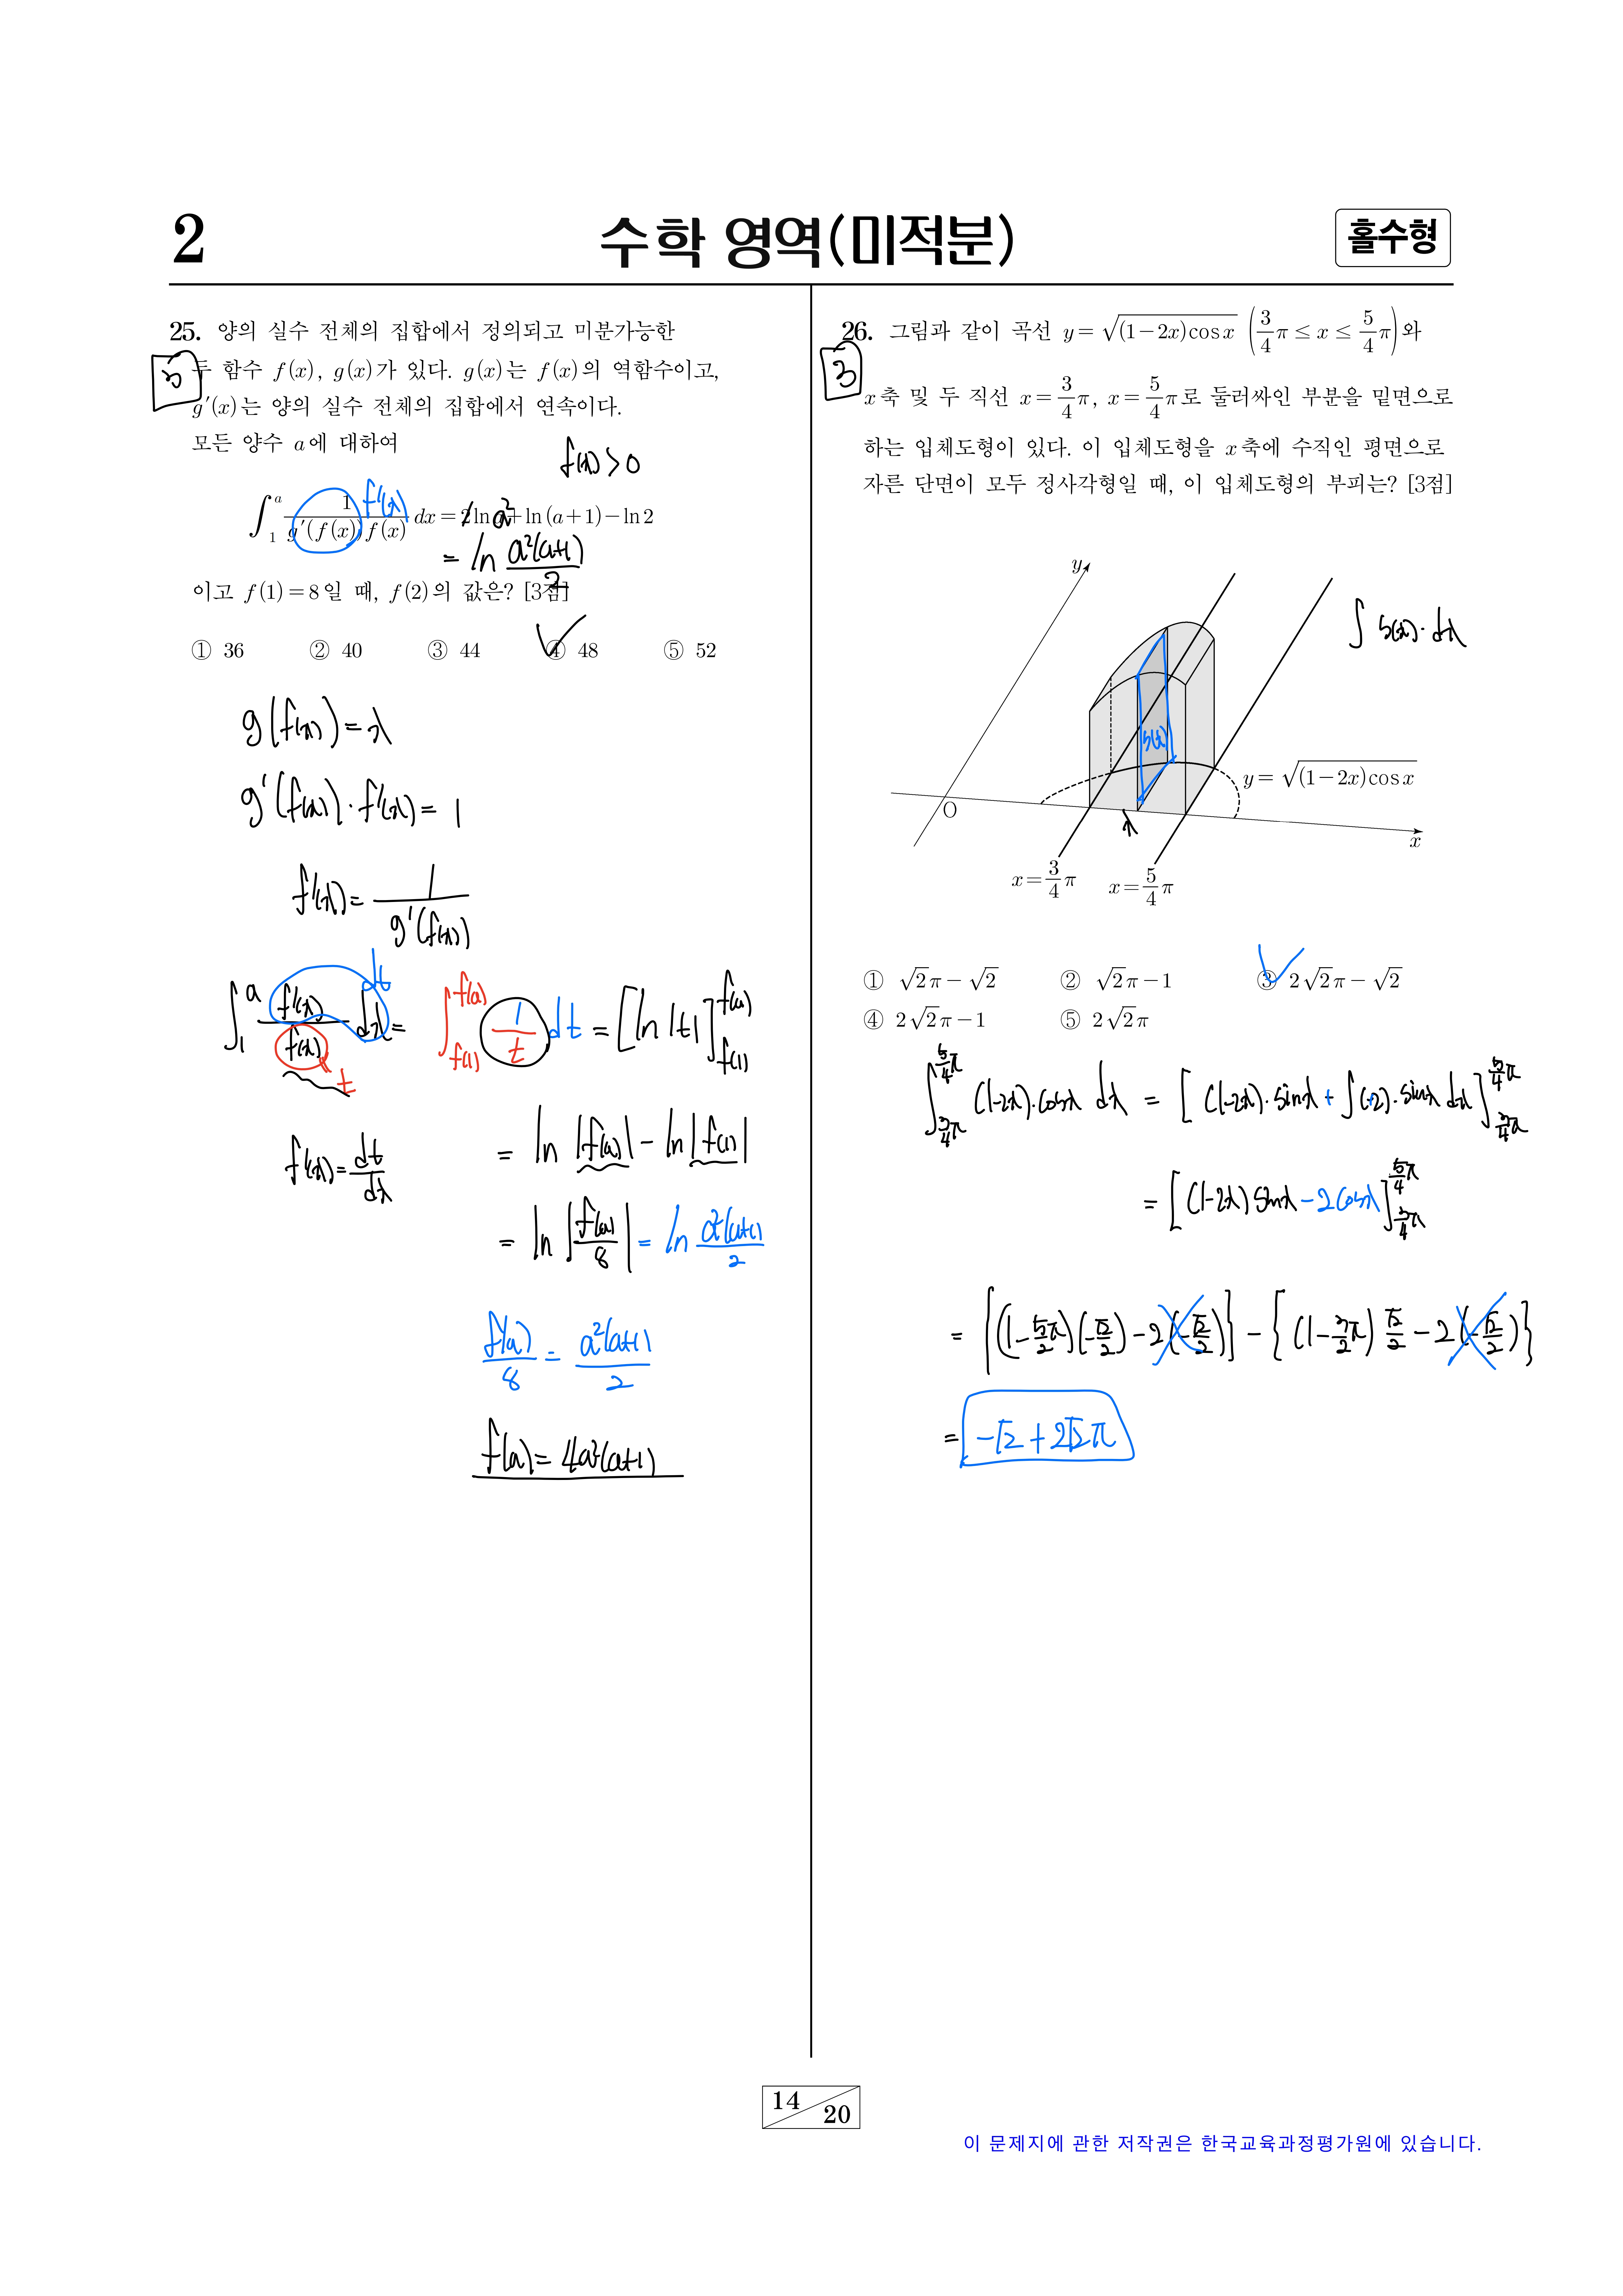 2
수학 영역(미적분)
홀수형
25. 양의 실수 전체의 집합에서 정의되고 미분가능한
두 함수 f(x), g(x)가 있다. g(x)는 f(x)의 역함수이고,
5
g′(x)는 양의 실수 전체의 집합에서 연속이다.
모든 양수 a에 대하여
f(x)>0
∫₁ᵃ 1/(g′(f(x))f(x)) dx = 2ln a + ln(a+1) − ln 2
f′(x)
a²
= ln a²(a+1)/2
이고 f(1)=8일 때, f(2)의 값은? [3점]
① 36 ② 40 ③ 44 ④ 48 ⑤ 52
g(f(x))=x
g′(f(x))·f′(x)=1
f′(x)= 1/g′(f(x))
∫₁ᵃ f′(x)/f(x) dx = ∫_{f(1)}^{f(a)} 1/t dt = [ln|t|]_{f(1)}^{f(a)}
dt
t
f′(x)= dt/dx
= ln|f(a)| − ln|f(1)|
= ln|f(a)/8| = ln a²(a+1)/2
f(a)/8 = a²(a+1)/2
f(a)=4a²(a+1)
26. 그림과 같이 곡선 y=√((1−2x)cos x) (3/4 π ≤ x ≤ 5/4 π)와
3
x축 및 두 직선 x=3/4 π, x=5/4 π로 둘러싸인 부분을 밑면으로
하는 입체도형이 있다. 이 입체도형을 x축에 수직인 평면으로
자른 단면이 모두 정사각형일 때, 이 입체도형의 부피는? [3점]
y
∫ S(x)·dx
S(x)
y=√((1−2x)cos x)
O
x
x
x=3/4 π
x=5/4 π
① √2π−√2 ② √2π−1 ③ 2√2π−√2
④ 2√2π−1 ⑤ 2√2π
∫_{3/4 π}^{5/4 π} (1−2x)·cosx dx = [(1−2x)·sinx + ∫(+2)·sinx dx]_{3/4 π}^{5/4 π}
= [(1−2x)sinx −2cosx]_{3/4 π}^{5/4 π}
= {(1−5/2 π)(−√2/2) −2(−√2/2)} − {(1−3/2 π) √2/2 −2(−√2/2)}
= −√2+2√2π
14
20
이 문제지에 관한 저작권은 한국교육과정평가원에 있습니다.